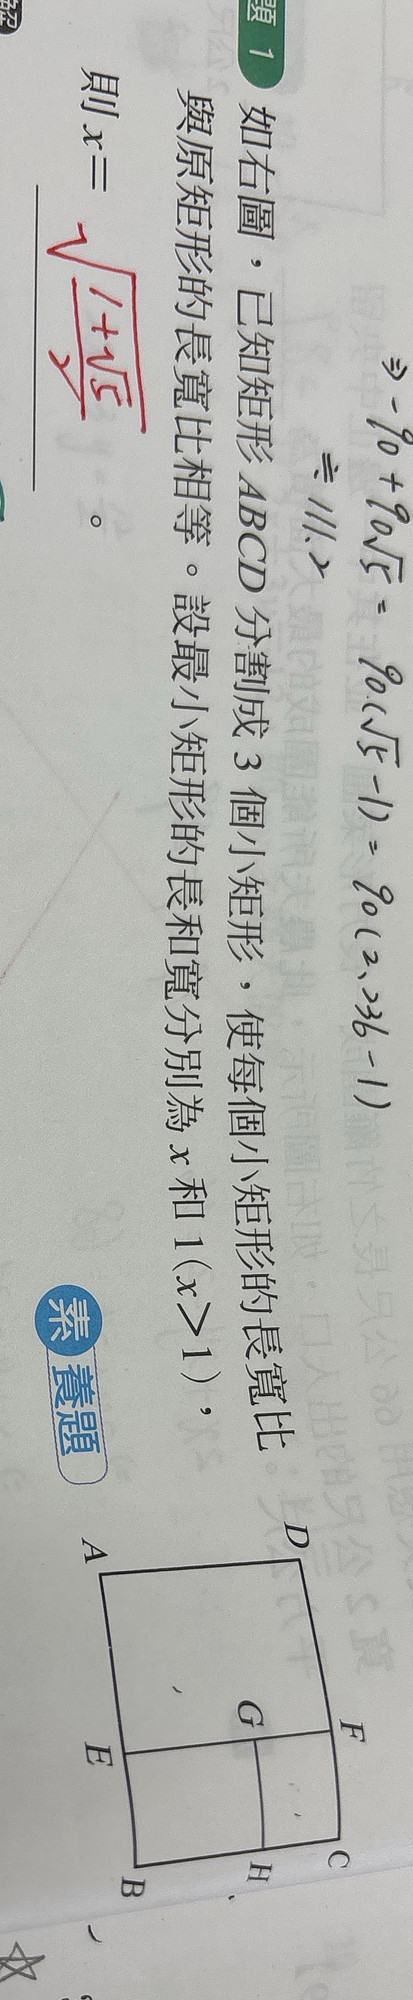 ⇒ -90+90√5 = 90(√5-1) = 90(2.236-1)
≒111.2
題 1
如右圖，已知矩形 ABCD 分割成 3 個小矩形，使每個小矩形的長寬比
與原矩形的長寬比相等。設最小矩形的長和寬分別為 x 和 1(x>1)，
則 x= √((1+√5)/2) 。
素養題
D F C
G H
A E B
解